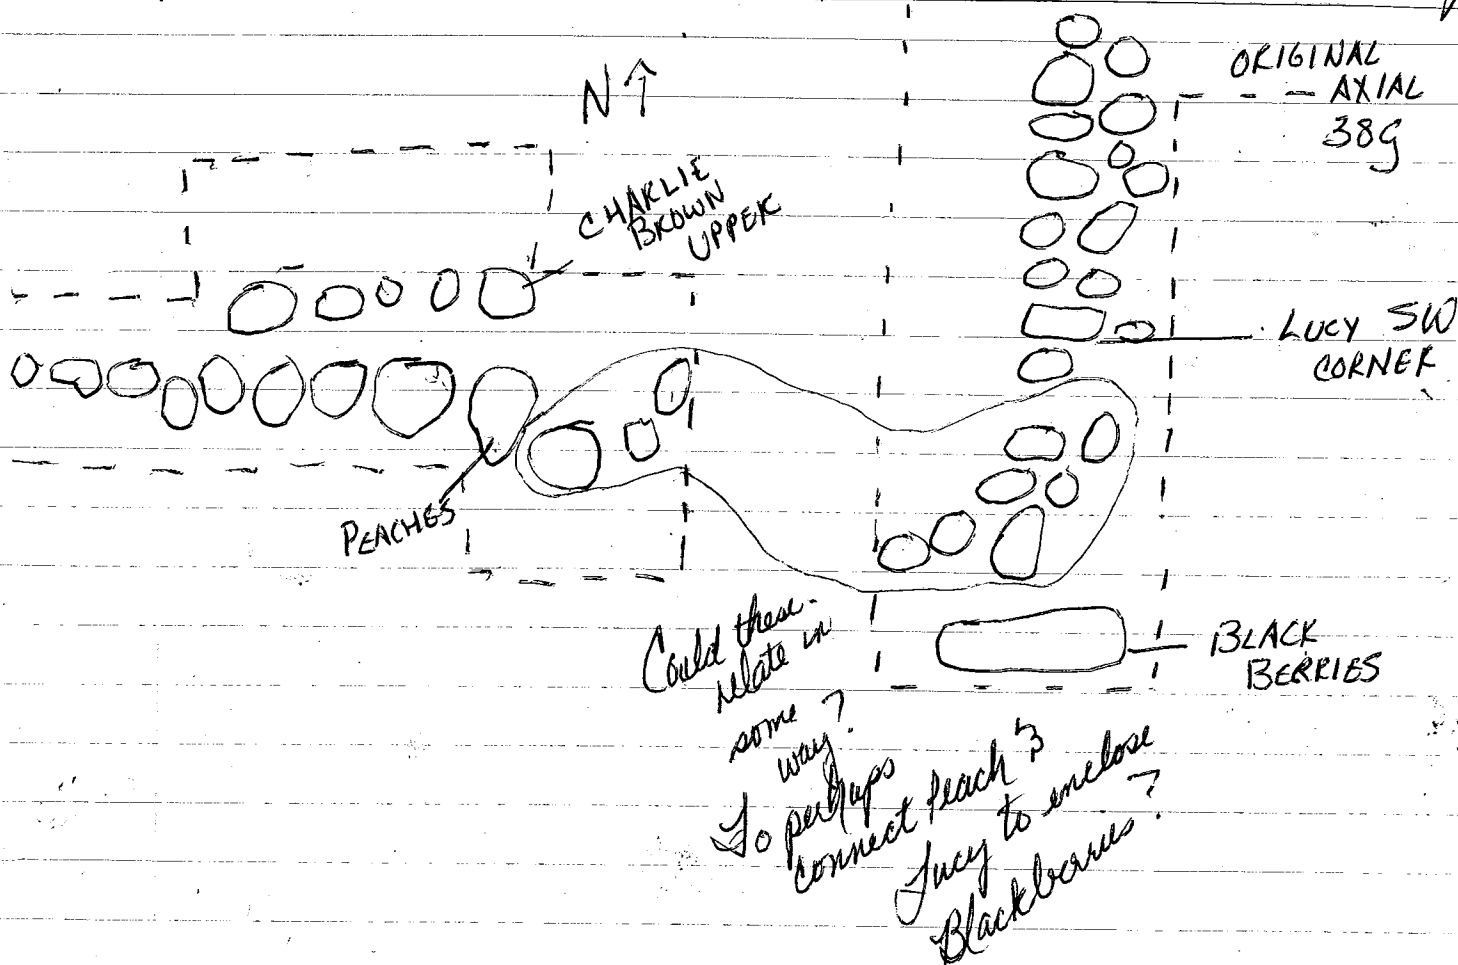 N↑
ORIGINAL
AXIAL
38G
CHARLIE
BROWN
UPPER
LUCY SW
CORNER
PEACHES
BLACK
BERRIES
Could these
relate in
some
way?
To perhaps
connect Peach &
Lucy to enclose
Blackberries?